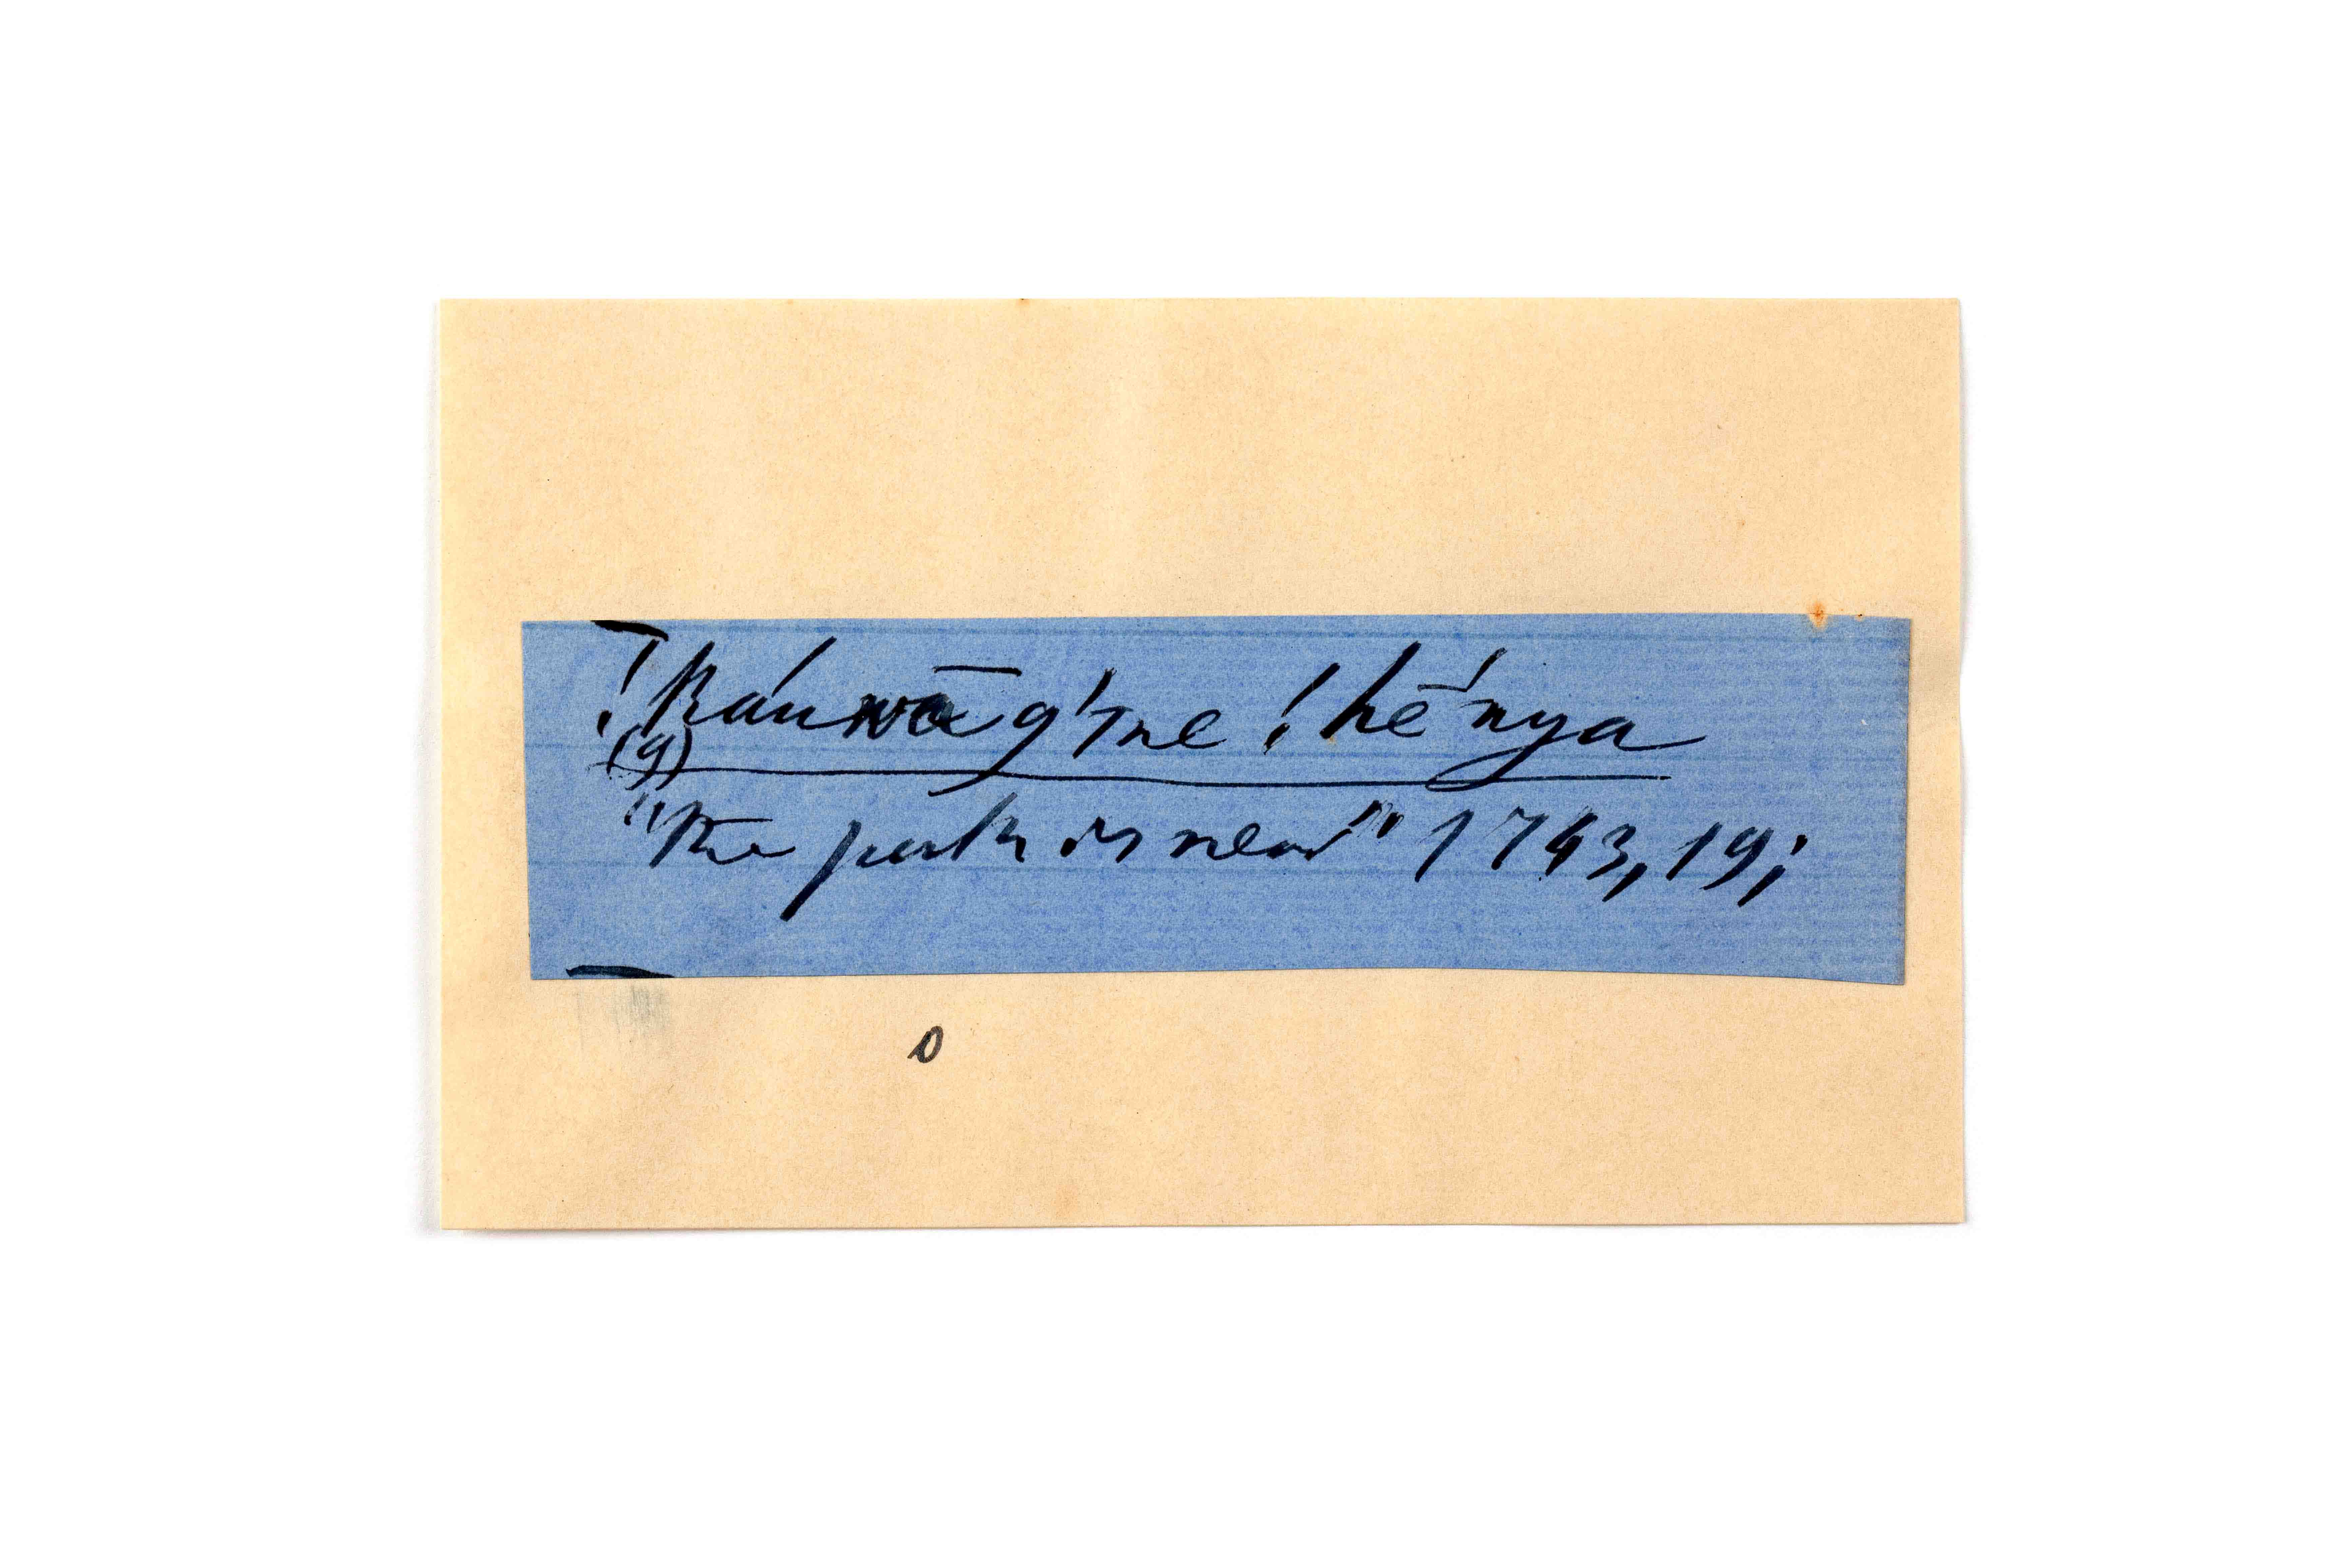 !káuwā g'ıne !hē´nya
(g)
"the path is near" 1743, 19;
o